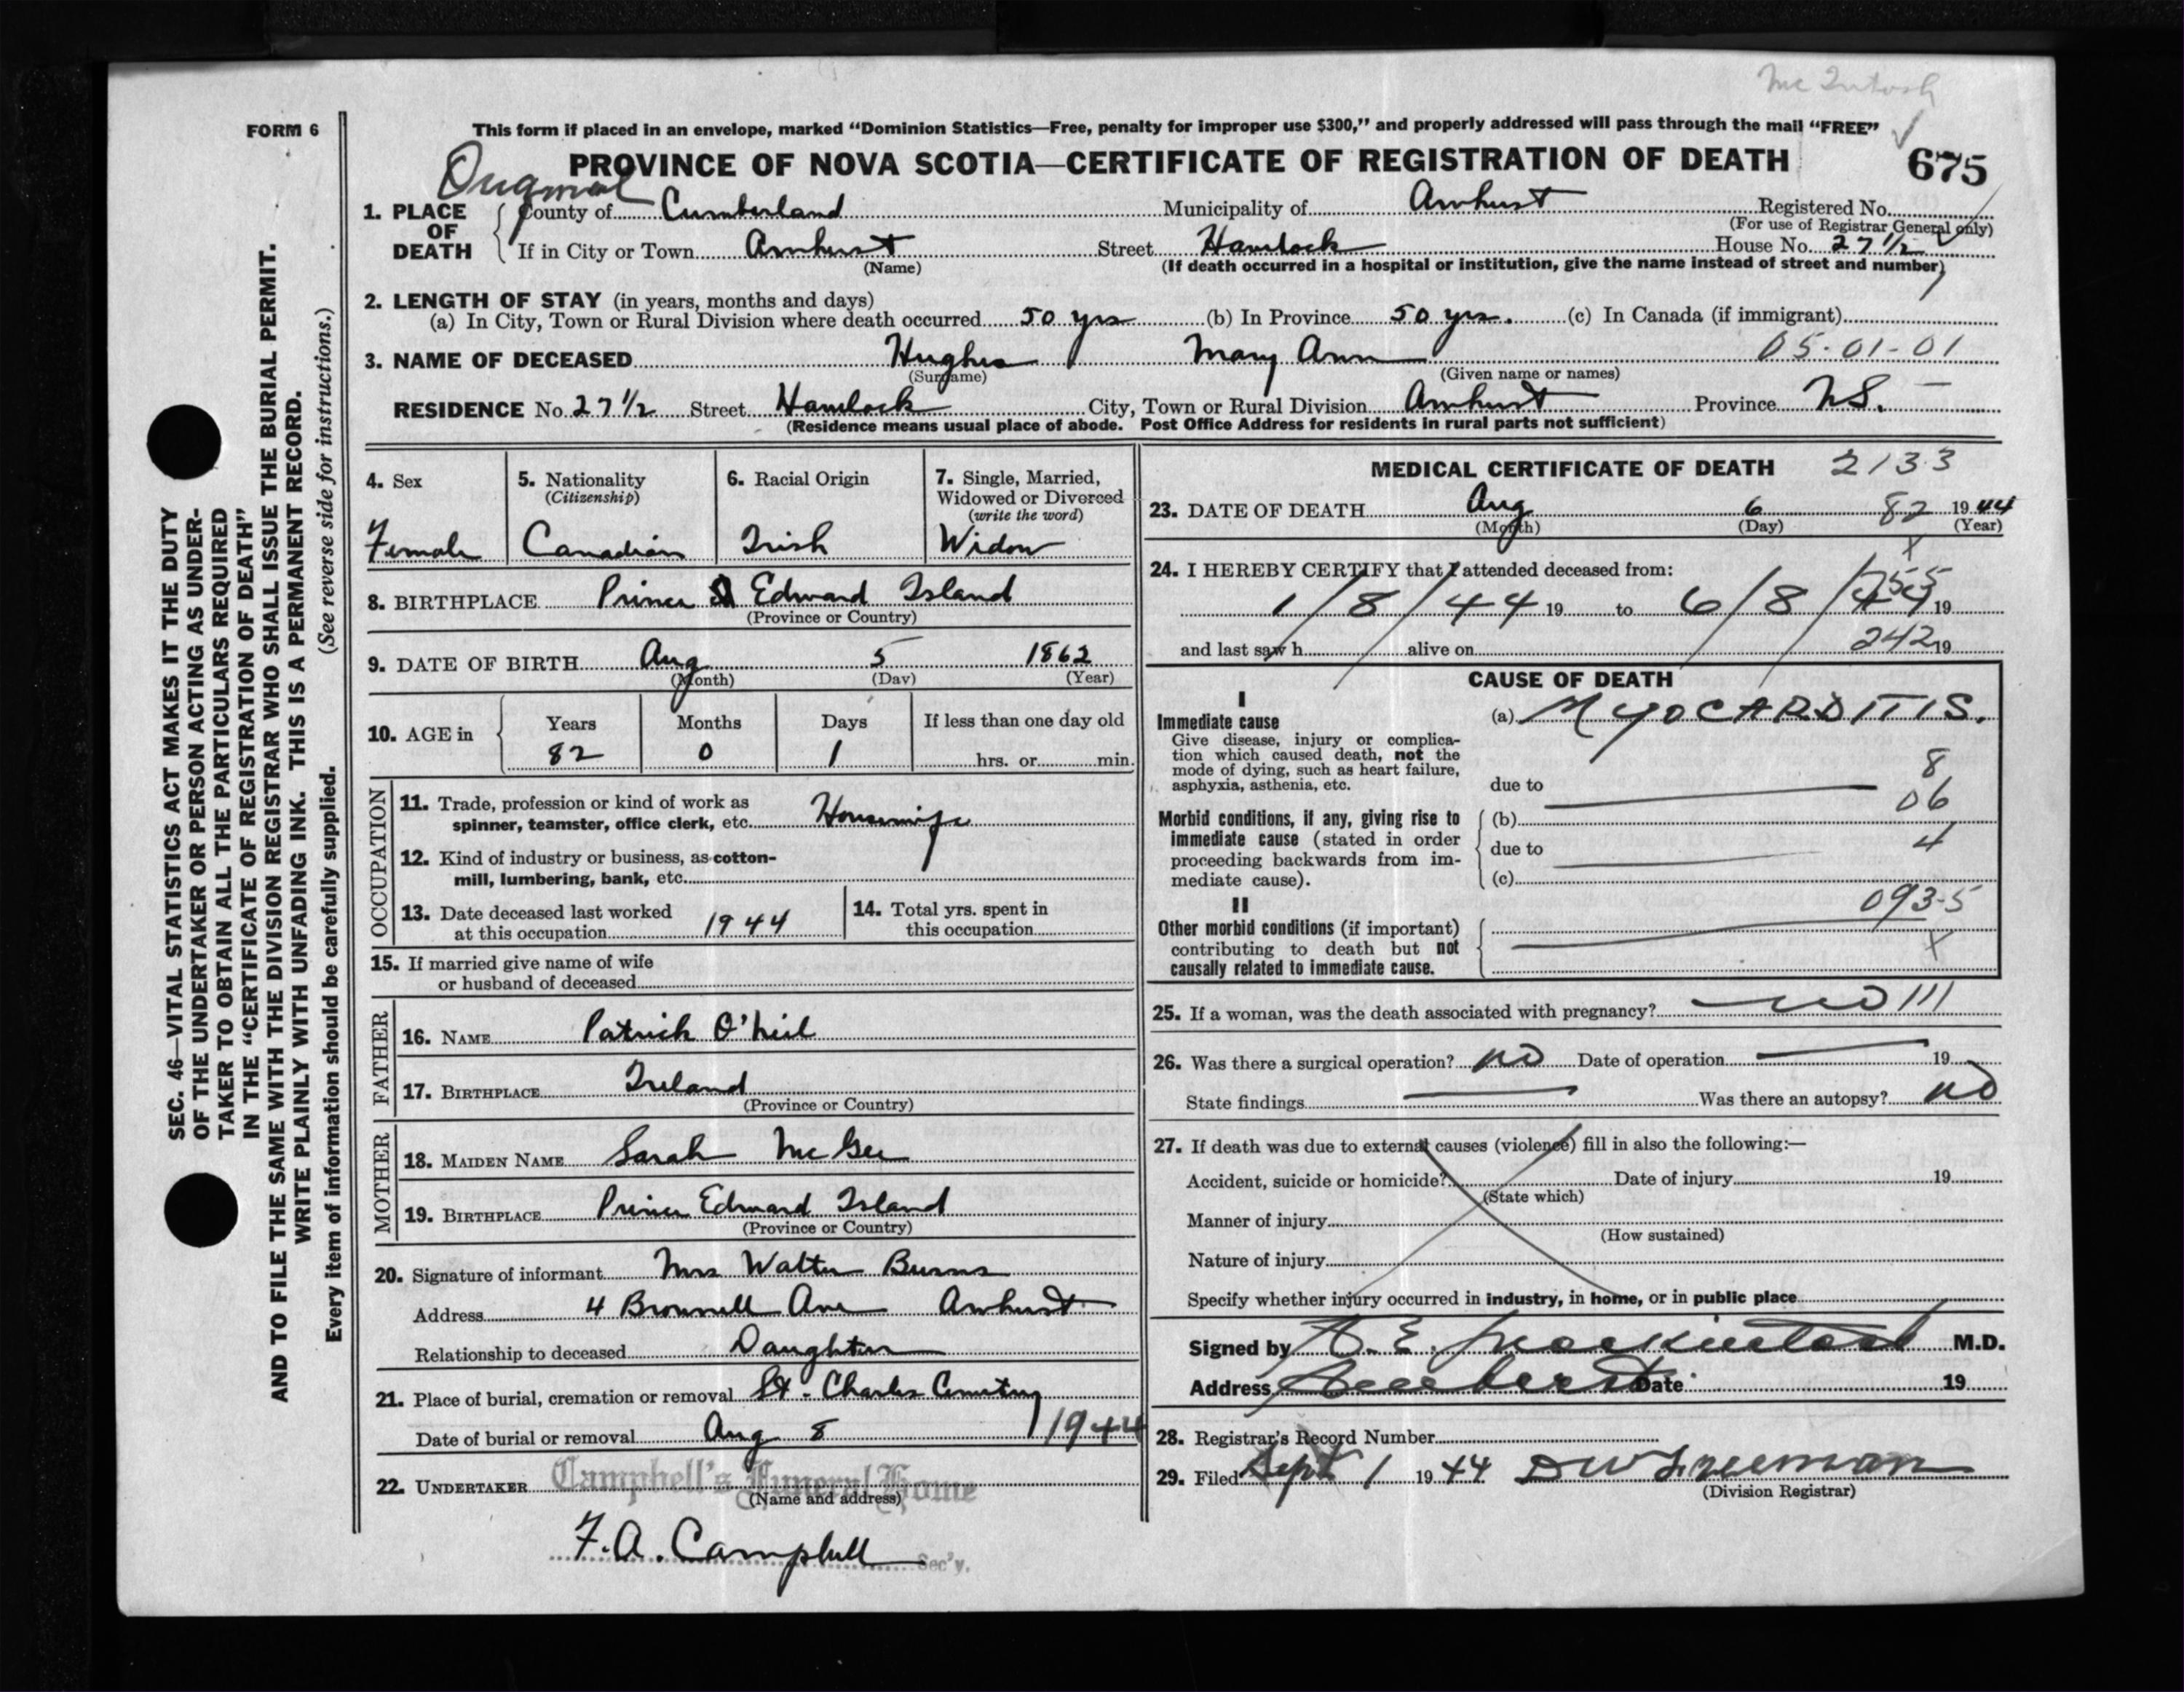 Mc Intosh
FORM 6
This form if placed in an envelope, marked "Dominion Statistics—Free, penalty for improper use $300," and properly addressed will pass through the mail "FREE"
PROVINCE OF NOVA SCOTIA—CERTIFICATE OF REGISTRATION OF DEATH 675
Original
1. PLACE OF DEATH County of Cumberland Municipality of Amherst Registered No.
(For use of Registrar General only)
If in City or Town Amherst Street Havelock House No. 27 1/2
(Name) (If death occurred in a hospital or institution, give the name instead of street and number)
2. LENGTH OF STAY (in years, months and days)
(a) In City, Town or Rural Division where death occurred 50 yrs (b) In Province 50 yrs. (c) In Canada (if immigrant)
3. NAME OF DECEASED Hughes Mary Ann 05-01-01
(Surname) (Given name or names)
RESIDENCE No. 27 1/2 Street Havelock City, Town or Rural Division Amherst Province N.S.
(Residence means usual place of abode. Post Office Address for residents in rural parts not sufficient)
4. Sex Female
5. Nationality (Citizenship) Canadian
6. Racial Origin Irish
7. Single, Married, Widowed or Divorced (write the word) Widow
8. BIRTHPLACE Prince Edward Island
(Province or Country)
9. DATE OF BIRTH Aug 5 1862
(Month) (Day) (Year)
10. AGE in Years Months Days If less than one day old
82 0 1 hrs. or min.
OCCUPATION
11. Trade, profession or kind of work as
spinner, teamster, office clerk, etc. Housewife
12. Kind of industry or business, as cotton-
mill, lumbering, bank, etc.
13. Date deceased last worked
at this occupation 1944
14. Total yrs. spent in
this occupation
15. If married give name of wife
or husband of deceased
FATHER
16. NAME Patrick O'Neil
17. BIRTHPLACE Ireland
(Province or Country)
MOTHER
18. MAIDEN NAME Sarah McGee
19. BIRTHPLACE Prince Edward Island
(Province or Country)
20. Signature of informant Mrs Walter Burns
Address 4 Brownell Ave Amherst
Relationship to deceased Daughter
21. Place of burial, cremation or removal St. Charles Cemetery
Date of burial or removal Aug 8 1944
22. UNDERTAKER Campbell's Funeral Home
(Name and address)
F. A. Campbell Sec'y.
MEDICAL CERTIFICATE OF DEATH 2133
23. DATE OF DEATH Aug 6 82 1944
(Month) (Day) (Year)
24. I HEREBY CERTIFY that I attended deceased from:
1/8/44 19 to 6/8/44 19
and last saw h alive on 242 19
CAUSE OF DEATH
I
Immediate cause
Give disease, injury or complica-
tion which caused death, not the
mode of dying, such as heart failure,
asphyxia, asthenia, etc.
(a) MYOCARDITIS.
8
due to
06
Morbid conditions, if any, giving rise to
immediate cause (stated in order
proceeding backwards from im-
mediate cause).
(b)
due to 4
(c)
II 093-5
Other morbid conditions (if important)
contributing to death but not X
causally related to immediate cause.
25. If a woman, was the death associated with pregnancy? no 111
26. Was there a surgical operation? no Date of operation 19
State findings Was there an autopsy? no
27. If death was due to external causes (violence) fill in also the following:—
Accident, suicide or homicide? Date of injury 19
(State which)
Manner of injury
(How sustained)
Nature of injury
Specify whether injury occurred in industry, in home, or in public place
Signed by E. Mackintosh M.D.
Address Amherst Date 19
28. Registrar's Record Number
29. Filed Sept 1 1944 D W Freeman
(Division Registrar)
SEC. 46—VITAL STATISTICS ACT MAKES IT THE DUTY
OF THE UNDERTAKER OR PERSON ACTING AS UNDER-
TAKER TO OBTAIN ALL THE PARTICULARS REQUIRED
IN THE "CERTIFICATE OF REGISTRATION OF DEATH"
AND TO FILE THE SAME WITH THE DIVISION REGISTRAR WHO SHALL ISSUE THE BURIAL PERMIT.
WRITE PLAINLY WITH UNFADING INK. THIS IS A PERMANENT RECORD.
Every item of information should be carefully supplied. (See reverse side for instructions.)